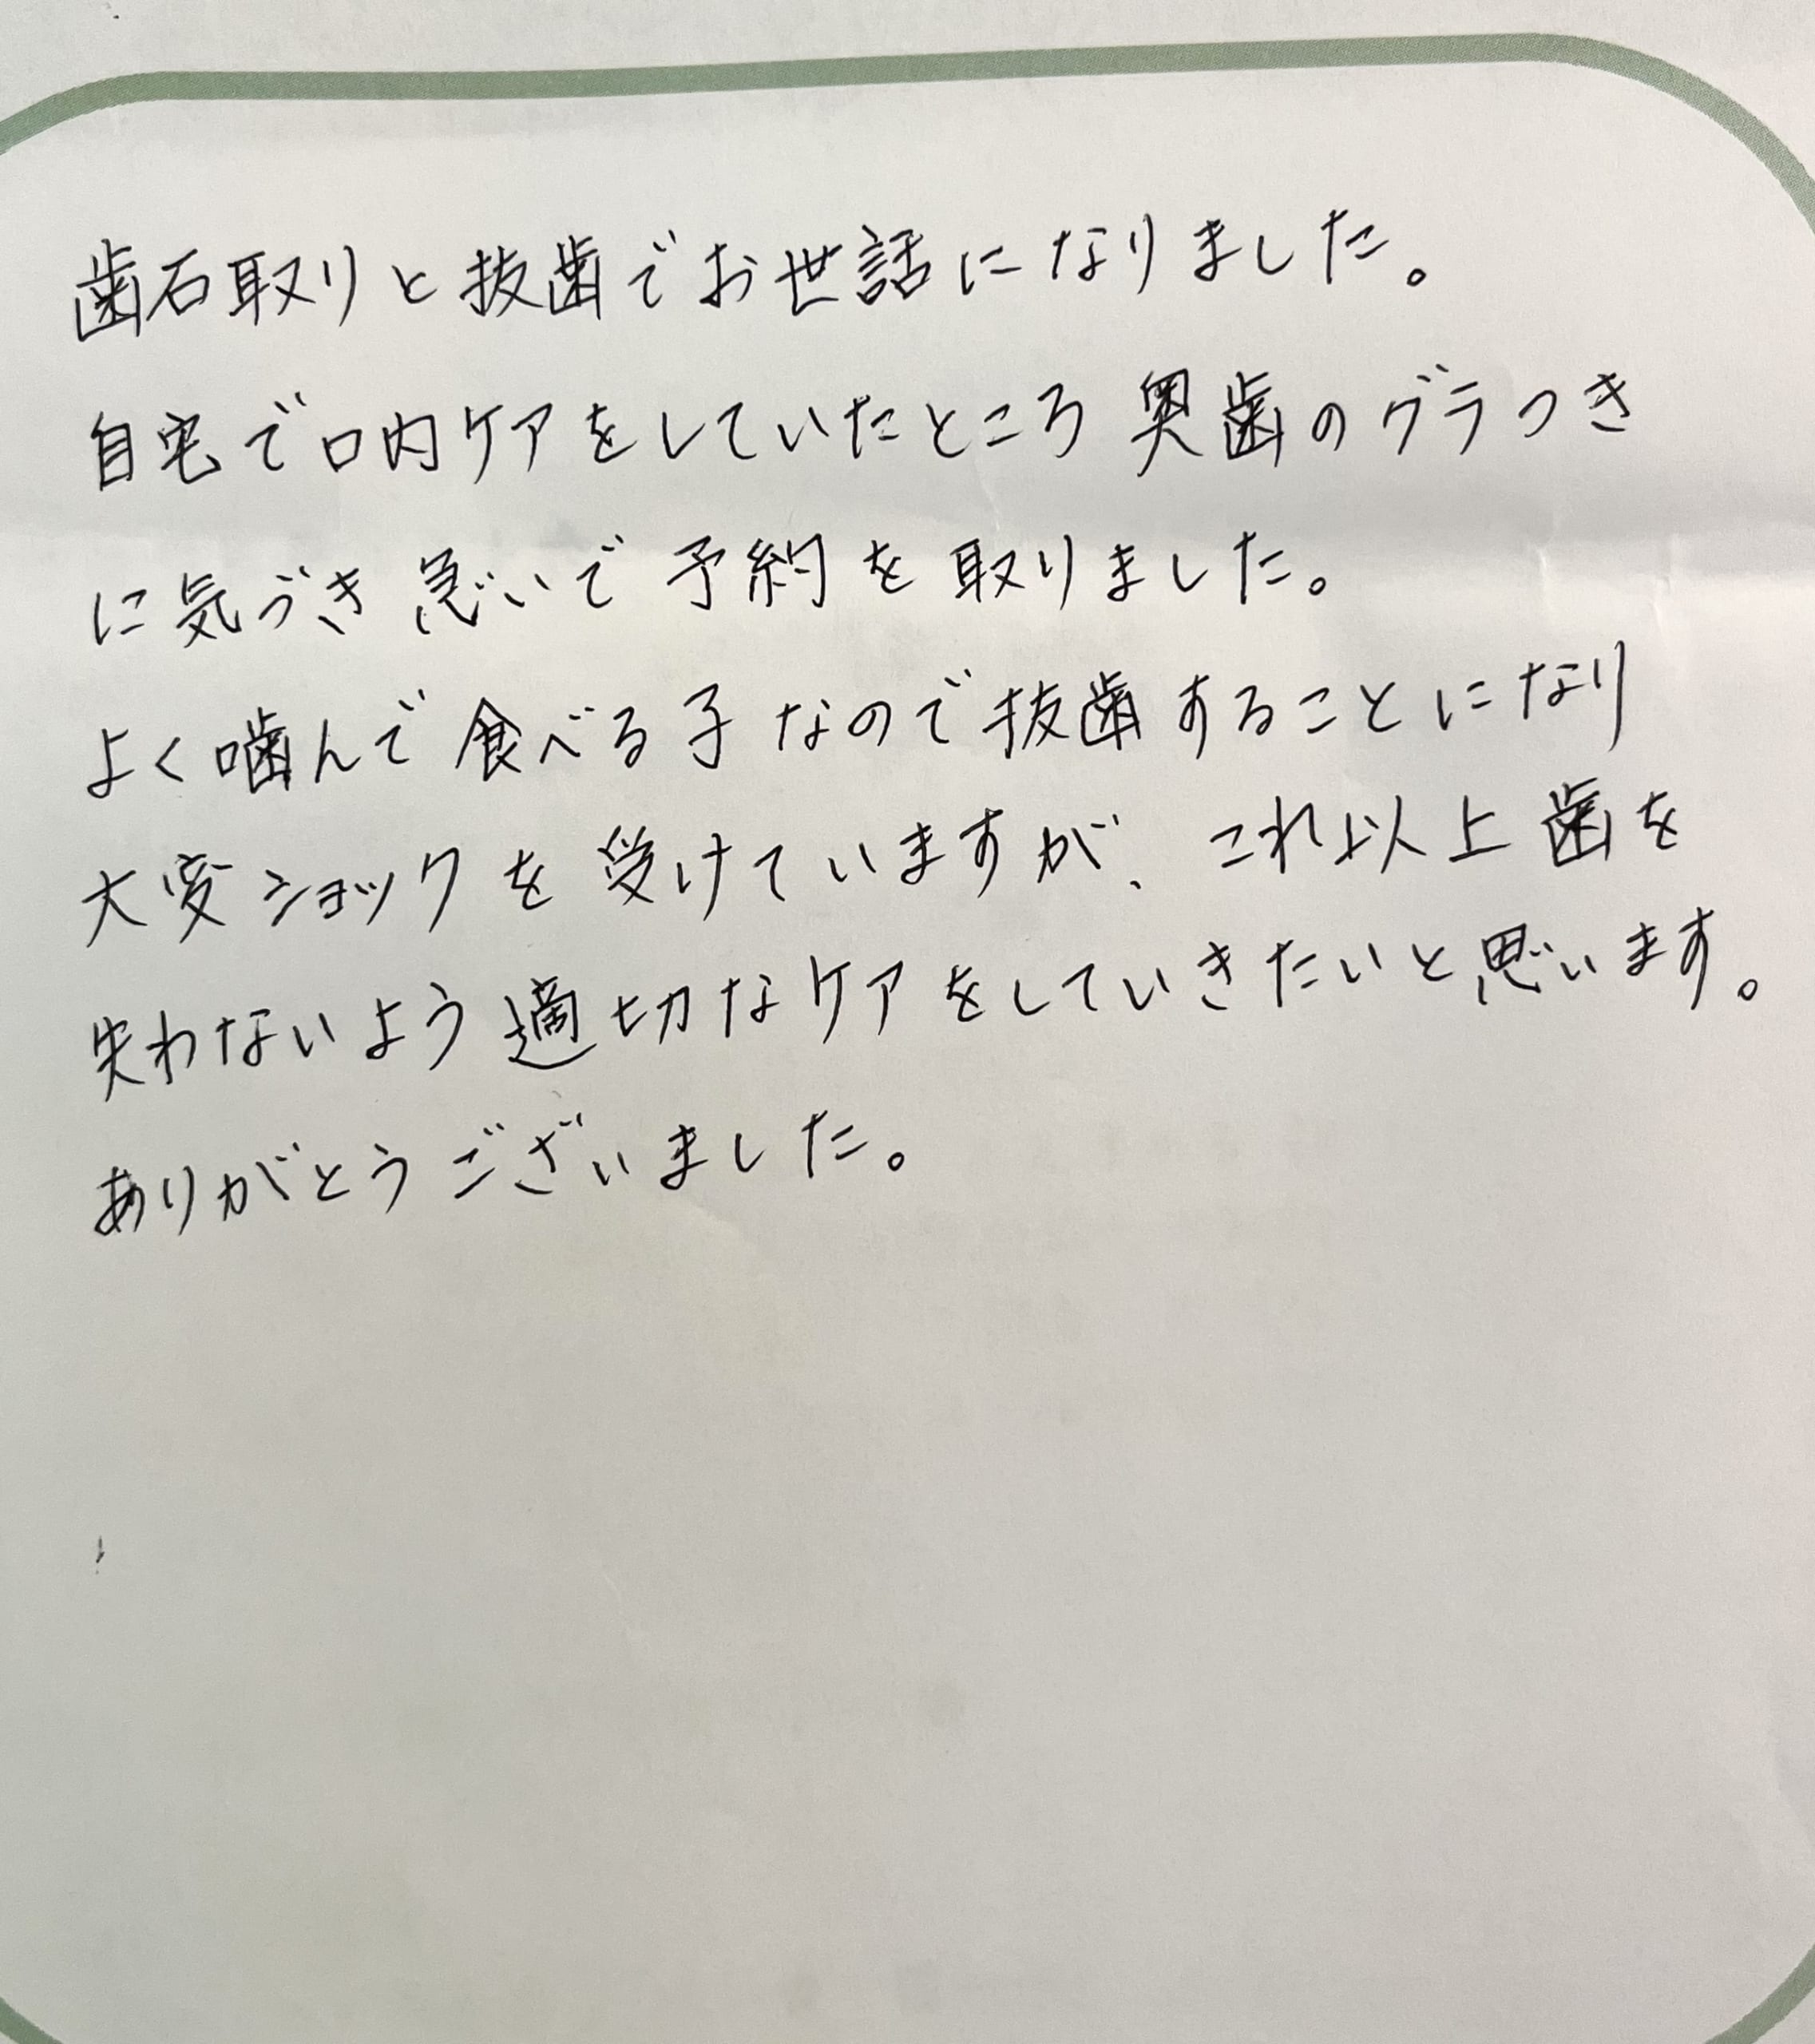 歯石取りと抜歯でお世話になりました。
自宅で口内ケアをしていたところ奥歯のグラつき
に気づき急いで予約を取りました。
よく噛んで食べる子なので抜歯することになり
大変ショックを受けていますが、これ以上歯を
失わないよう適切なケアをしていきたいと思います。
ありがとうございました。